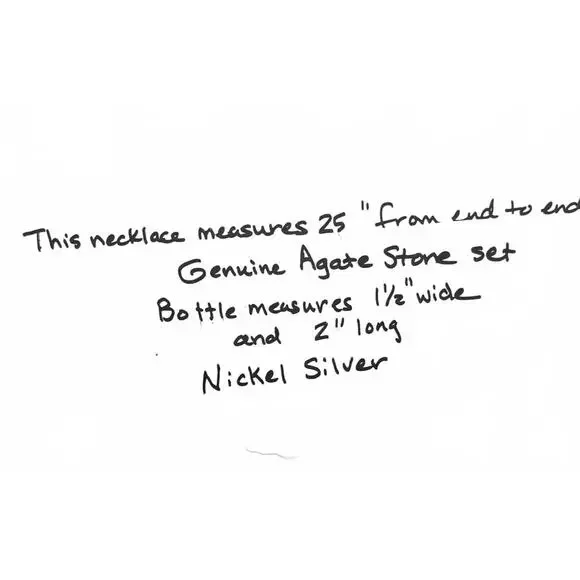 This necklace measures 25 " from end to end
Genuine Agate Stone set
Bottle measures 1 1/2" wide
and 2" long
Nickel Silver